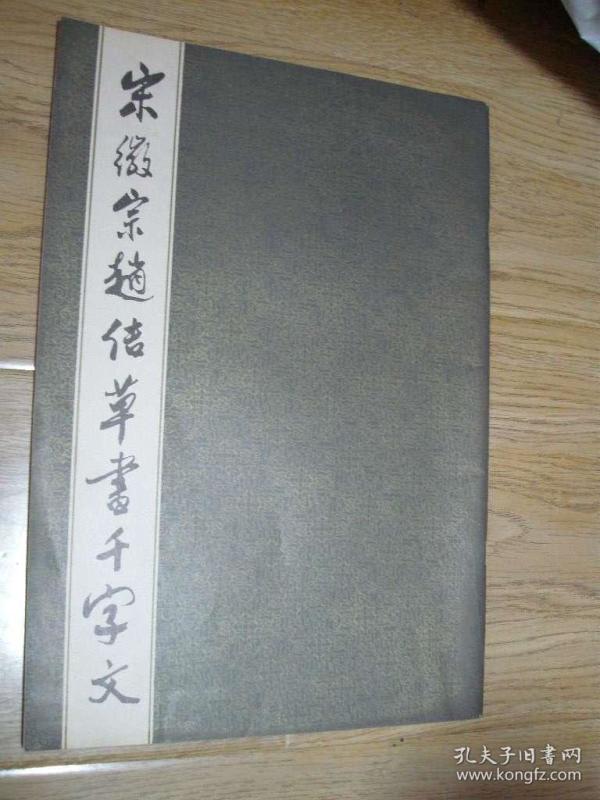 宋徽宗趙佶草書千字文
孔夫子旧书网
www.kongfz.com